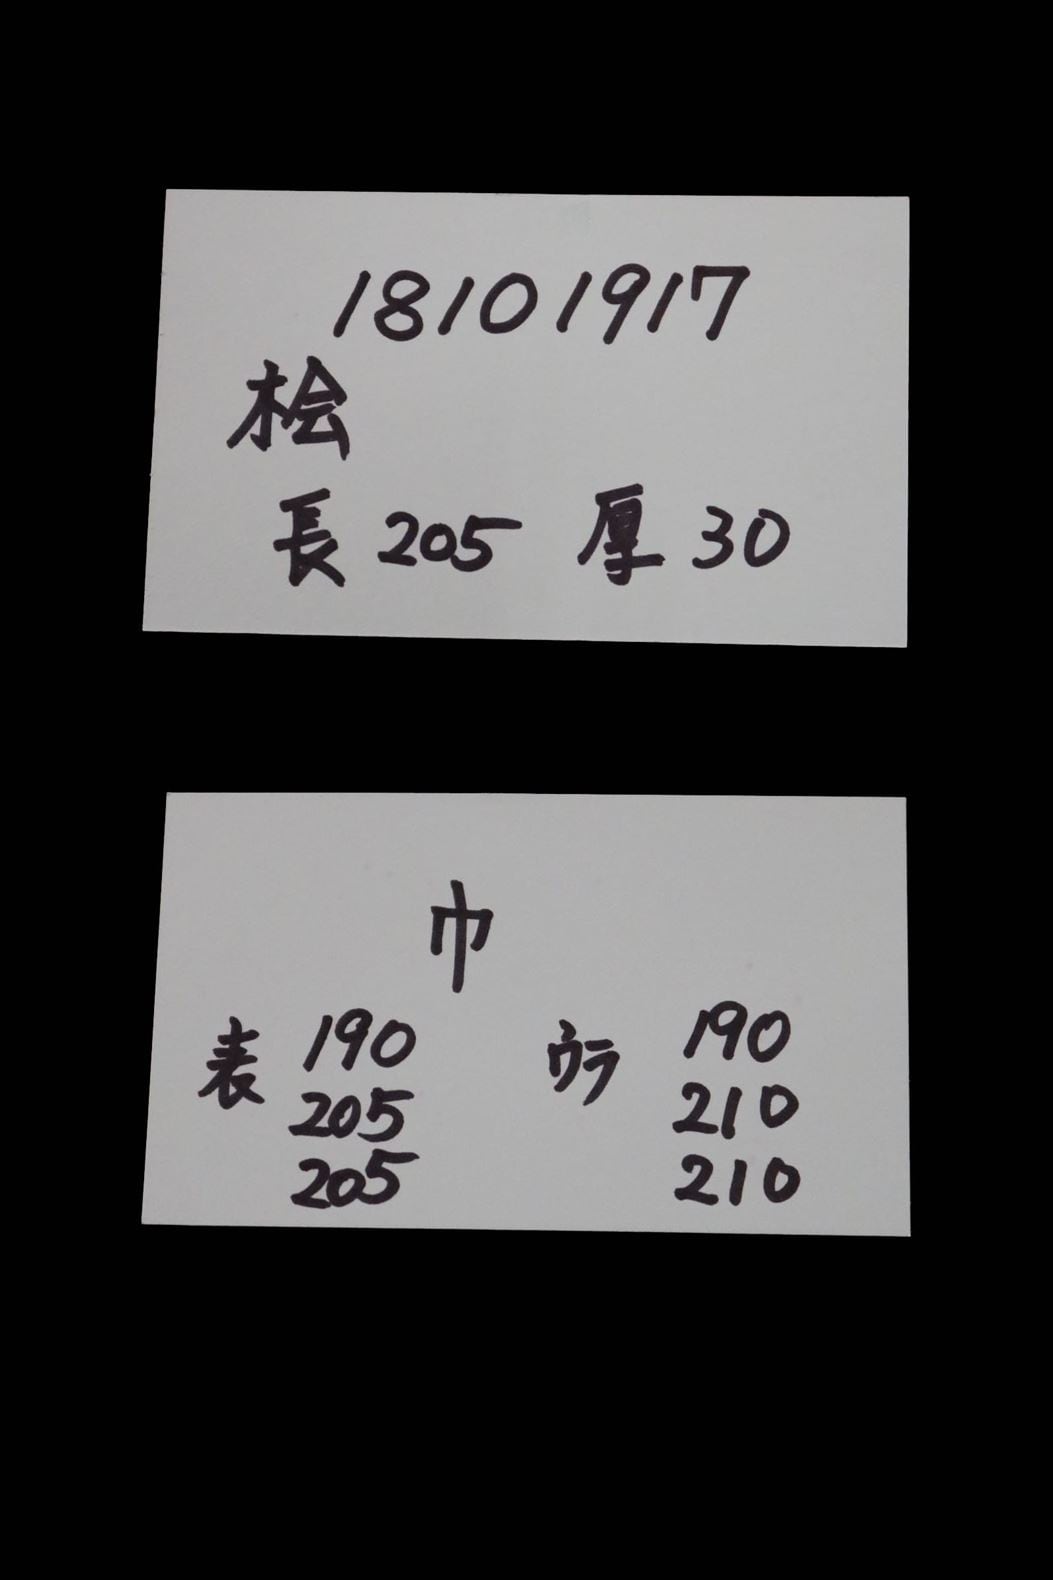 18101917
桧
長 205 厚 30
巾
表 190 ウラ 190
205 210
205 210